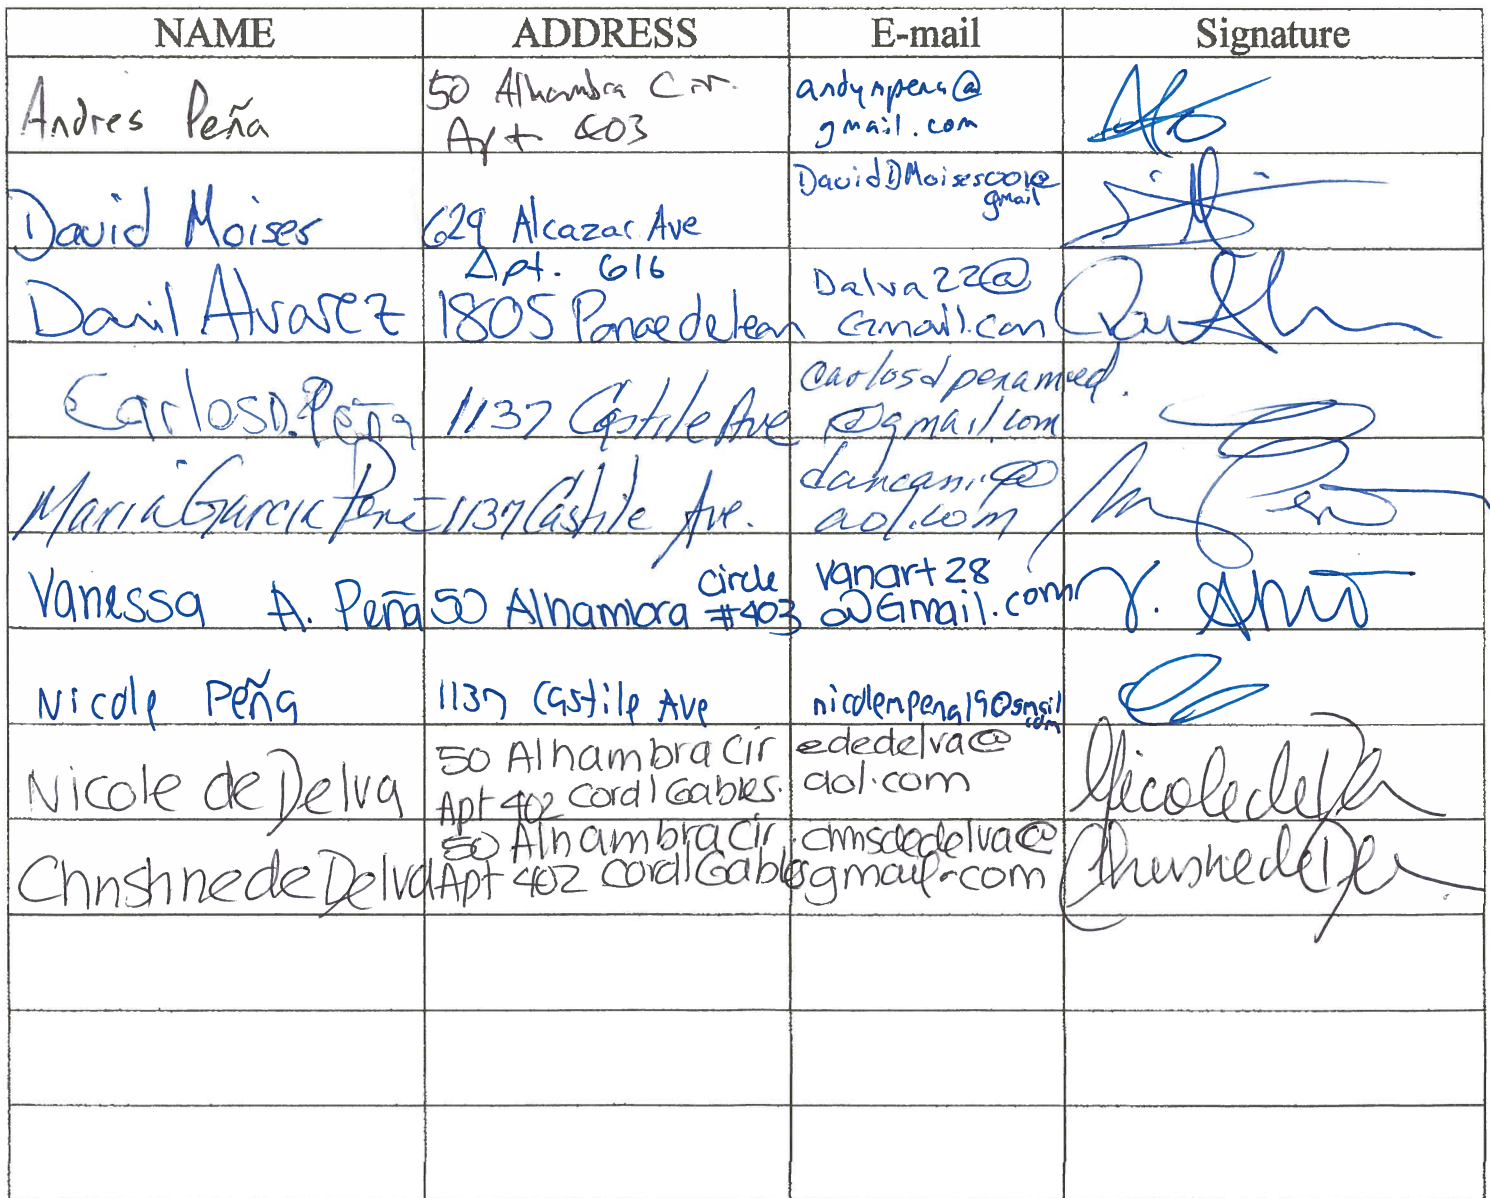 NAME ADDRESS E-mail Signature
Andres Peña
50 Alhambra Cir.
Apt 403
andympena@
gmail.com
David Moises
629 Alcazar Ave
Apt. 616
DavidDMoises001@
gmail
Alvarez
1805
Dalva22@
Gmail.com
Carlos D. Peña
1137 Castile Ave
carlosdpenamed.
@gmail.com
Maria Garcia Pena
1137 Castile Ave.
dancani@
aol.com
Vanessa A. Peña
50 Alhambra Circle
#403
vanart28
@Gmail.com
V.
Nicole Peña
1137 Castile Ave
nicolempena19@gmail
.com
Nicole de Delva
50 Alhambra Cir
Apt 402 Coral Gables.
ededelva@
aol.com
Nicole de Del
Christine de Delva
50 Alhambra Cir.
Apt 402 Coral Gables
chrisdedelva@
gmail.com